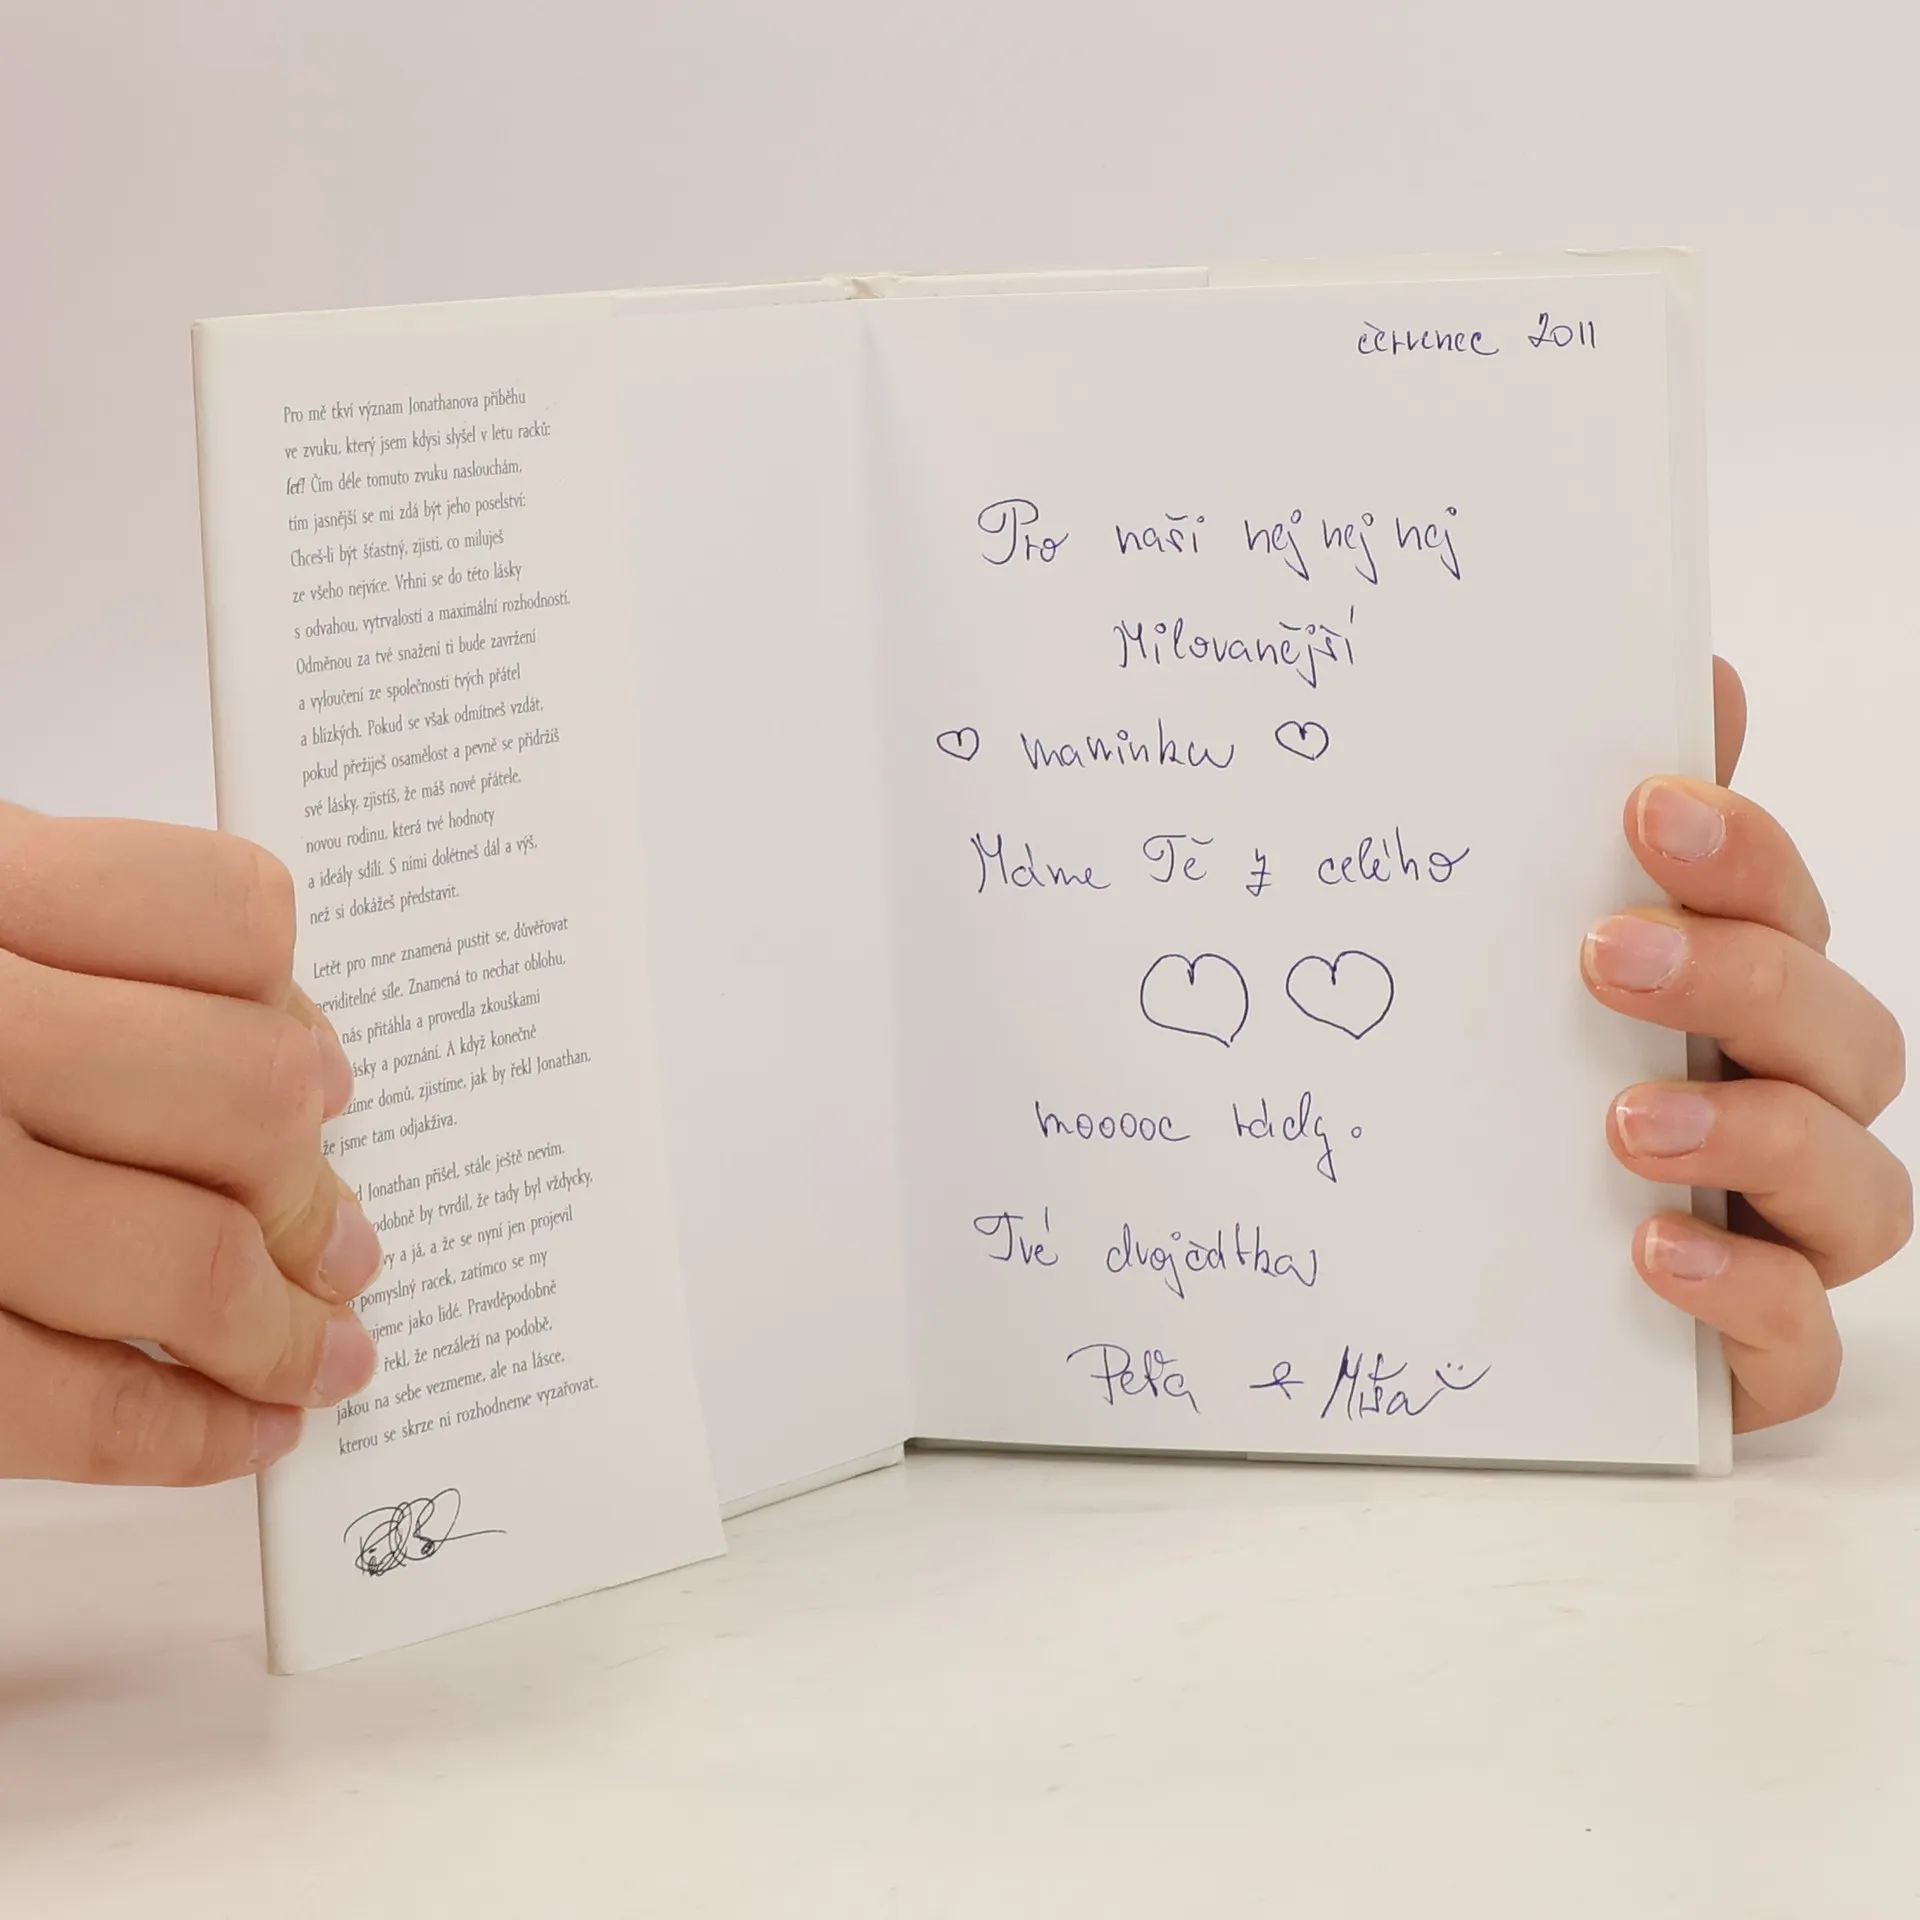 Pro mě tkví význam Jonathanova příběhu
ve zvuku, který jsem kdysi slyšel v letu racků:
leť! Čím déle tomuto zvuku naslouchám,
tím jasnější se mi zdá být jeho poselství:
Chceš-li být šťastný, zjisti, co miluješ
ze všeho nejvíce. Vrhni se do této lásky
s odvahou, vytrvalostí a maximální rozhodností.
Odměnou za tvé snažení ti bude zavržení
a vyloučení ze společnosti tvých přátel
a blízkých. Pokud se však odmítneš vzdát,
pokud přežiješ osamělost a pevně se přidržíš
své lásky, zjistíš, že máš nové přátele,
novou rodinu, která tvé hodnoty
a ideály sdílí. S nimi dolétneš dál a výš,
než si dokážeš představit.
Letět pro mne znamená pustit se, důvěřovat
neviditelné síle. Znamená to nechat oblohu,
nás přitáhla a provedla zkouškami
lásky a poznání. A když konečně
domů, zjistíme, jak by řekl Jonathan,
že jsme tam odjakživa.
Jonathan přišel, stále ještě nevím.
by tvrdil, že tady byl vždycky,
vy a já, a že se nyní jen projevil
pomyslný racek, zatímco se my
jako lidé. Pravděpodobně
řekl, že nezáleží na podobě,
jakou na sebe vezmeme, ale na lásce,
kterou se skrze ni rozhodneme vyzařovat.
červenec 2011
Pro naši nej nej nej
Milovanější
♡ maminku ♡
Máme Tě z celého
♡ ♡
mooooc rády.
Tvé dvojčátka
Peťa + Míša